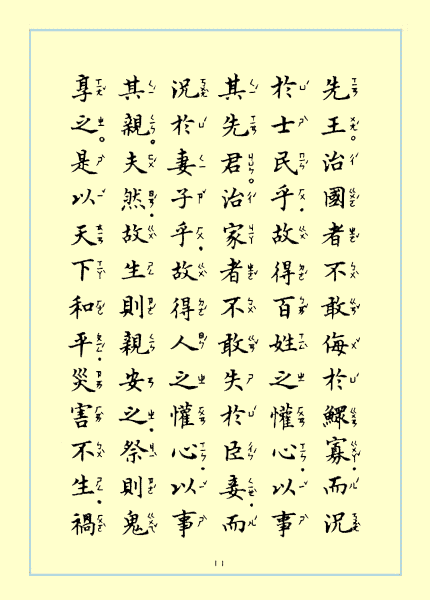 先王。治國者不敢侮於鰥寡．而況
於士民乎．故得百姓之懽心．以事
其先君。治家者不敢失於臣妾．而
況於妻子乎．故得人之懽心．以事
其親。夫然．故生則親安之．祭則鬼
享之。是以天下和平．災害不生．禍
11